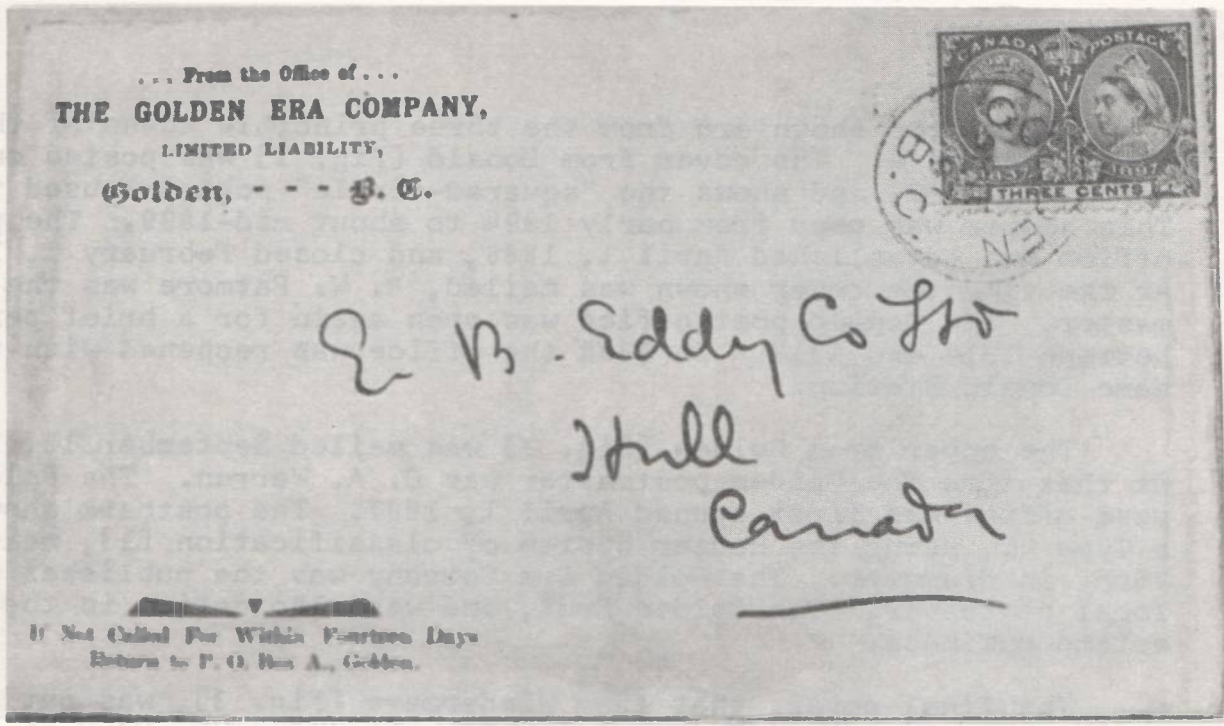 ... From the Office of ...
THE GOLDEN ERA COMPANY,
LIMITED LIABILITY,
Golden, - - - B. C.
CANADA POSTAGE
1837 1897
THREE CENTS
GOLDEN
B.C.
E. B. Eddy Co Ltd
Hull
Canada
If Not Called For Within Fourteen Days
Return to P. O. Box A., Golden.